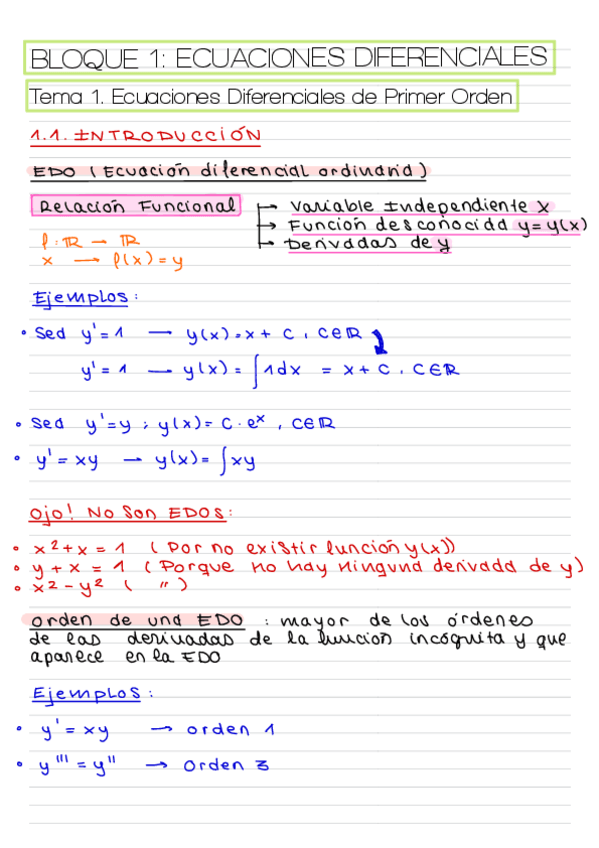 BLOQUE 1: ECUACIONES DIFERENCIALES
Tema 1. Ecuaciones Diferenciales de Primer Orden
1.1. INTRODUCCIÓN
EDO (Ecuación diferencial ordinaria)
Relación Funcional → Variable Independiente x
→ Función desconocida y=y(x)
→ Derivadas de y
f: ℝ → ℝ
x → f(x) = y
Ejemplos:
• Sea y' = 1 → y(x) = x + C, C∈ℝ
y' = 1 → y(x) = ∫1dx = x + C, C∈ℝ
• Sea y'=y ; y(x) = C · eˣ, C∈ℝ
• y' = xy → y(x) = ∫xy
Ojo! No Son EDOS:
• x² + x = 1 (Por no existir función y(x))
• y + x = 1 (Porque no hay ninguna derivada de y)
• x² - y² ( " )
orden de una EDO : mayor de los órdenes
de las derivadas de la función incógnita y que
aparece en la EDO
Ejemplos:
• y' = xy → orden 1
• y''' = y'' → orden 3